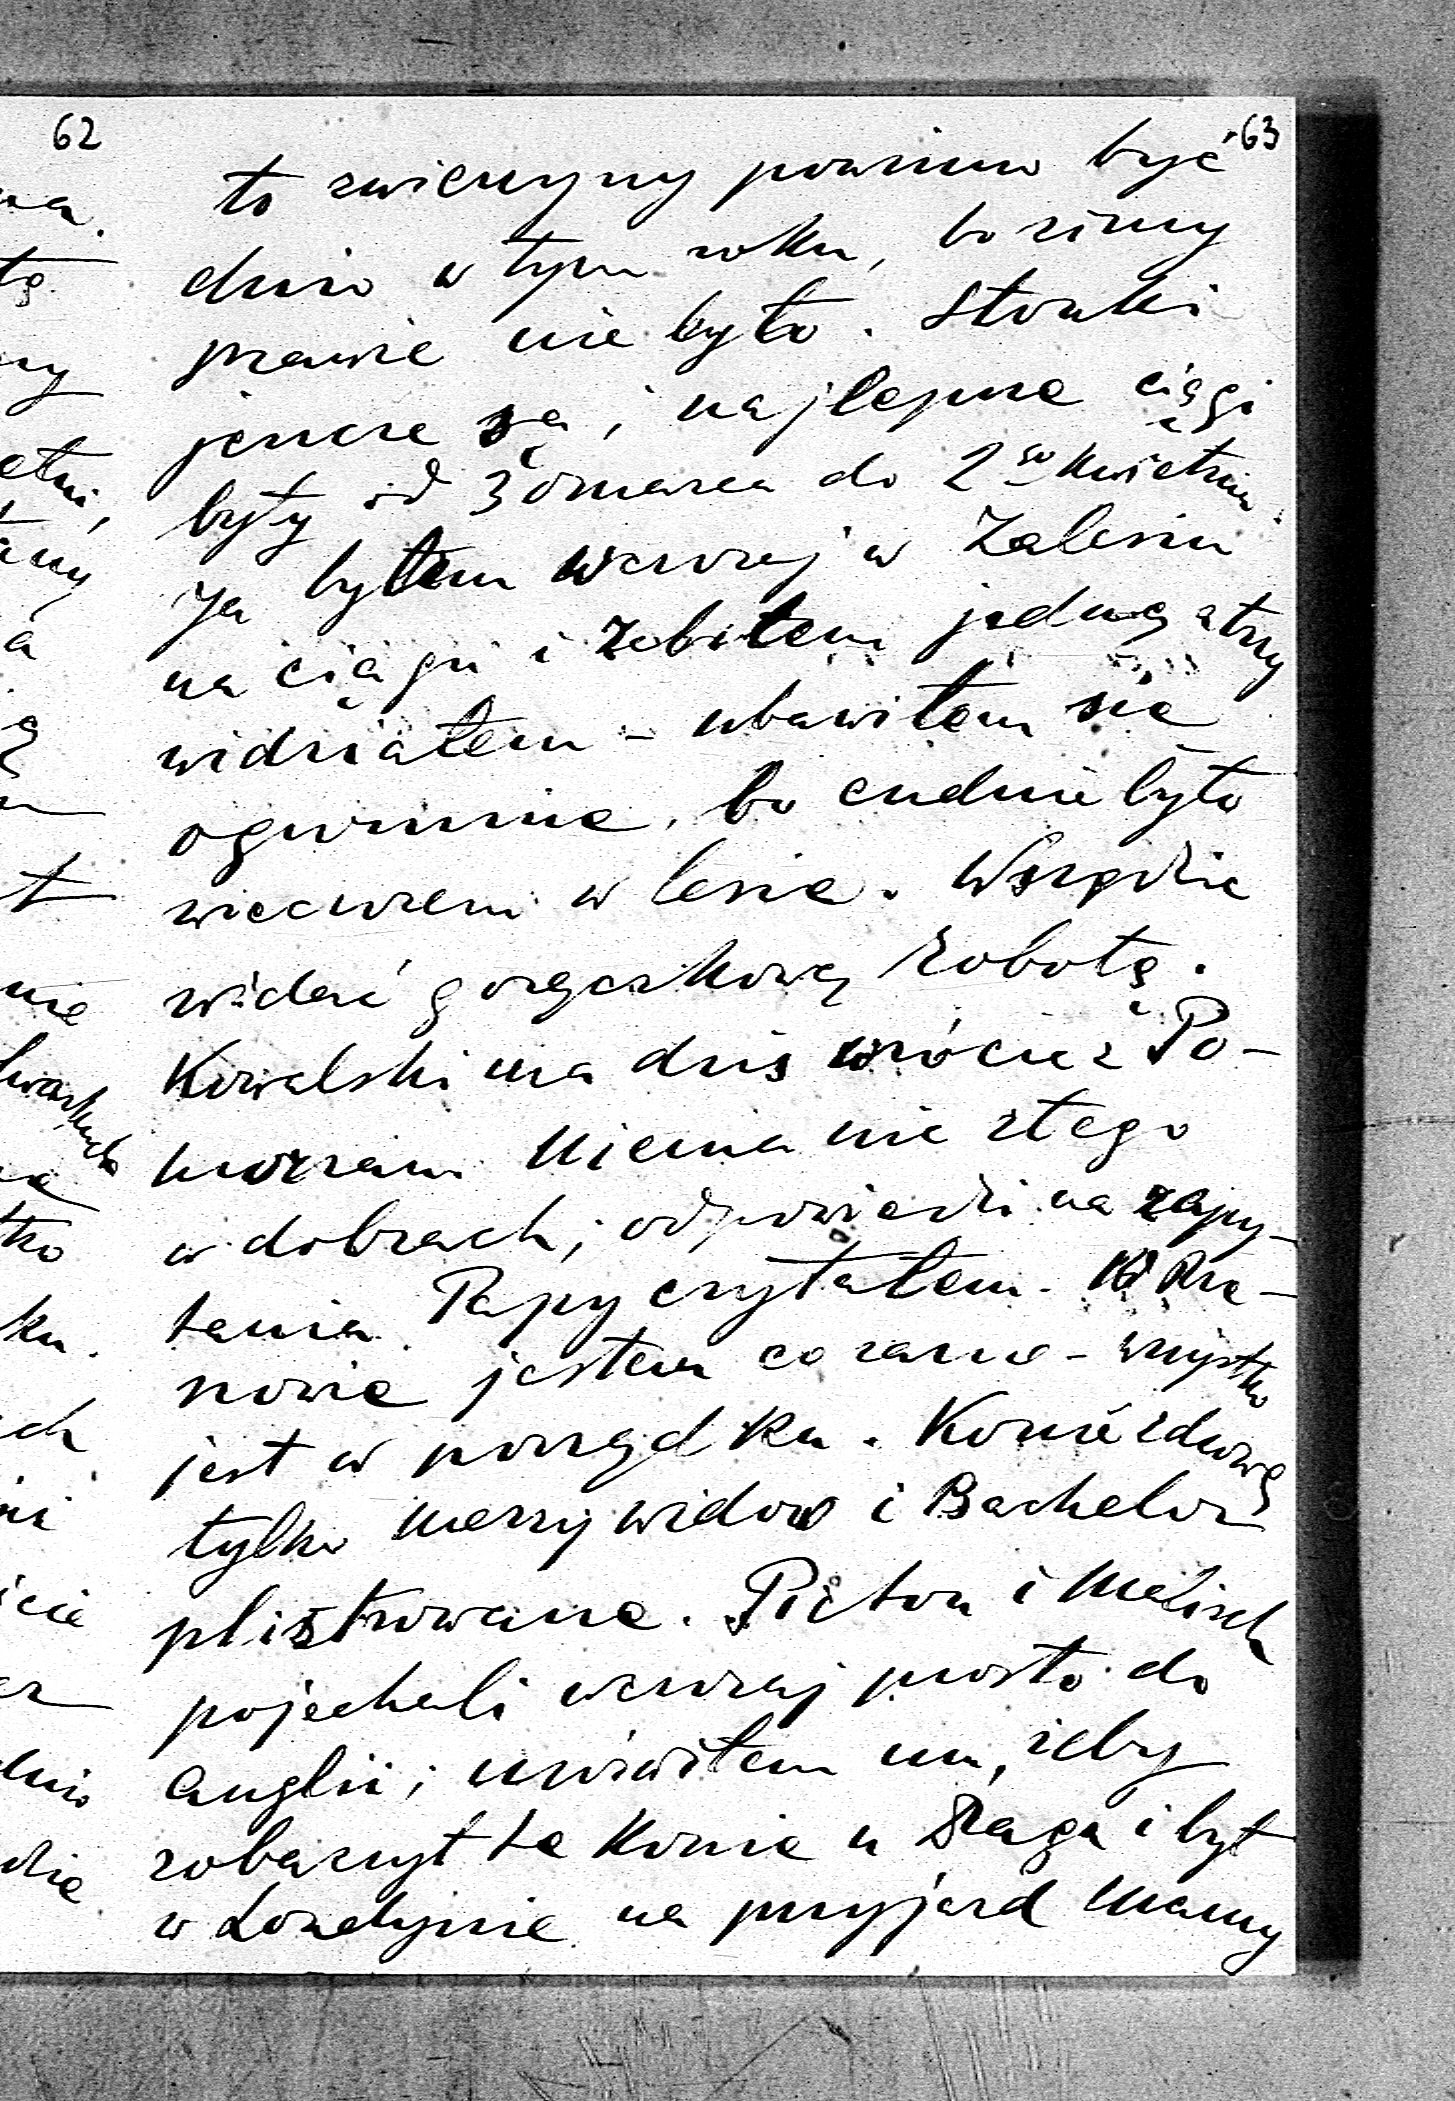 62
63
to zwierzyny powinno być
dużo w tym roku, bo zimy
prawie nie było. Słonki
jeszcze są, i najlepsze ciągi
były od 30 marca do 2go kwietnia.
Ja byłem wczoraj w Zalesiu
na ciągu i zabiłem jedną a trzy
widziałem – ubawiłem się
ogromnie, bo cudnie było
wieczorem w lesie. Wszędzie
widać gorączkową robotę.
Kowalski ma dziś wrócić z Po-
morzan. Niema nic złego
w dobrach; odpowiedzi na zapy-
tania Papy czytałem. W Kra-
nowie jestem co rano – wszystko
jest w porządku. Konie zdrowe
tylko Merry widow i Bachelor
plistrowane. Picton i Melisch
pojechali wczoraj prosto do
Anglii; mówiłem mu, żeby
zobaczył te konie u Draga i był
w Londynie na przyjazd Mamy